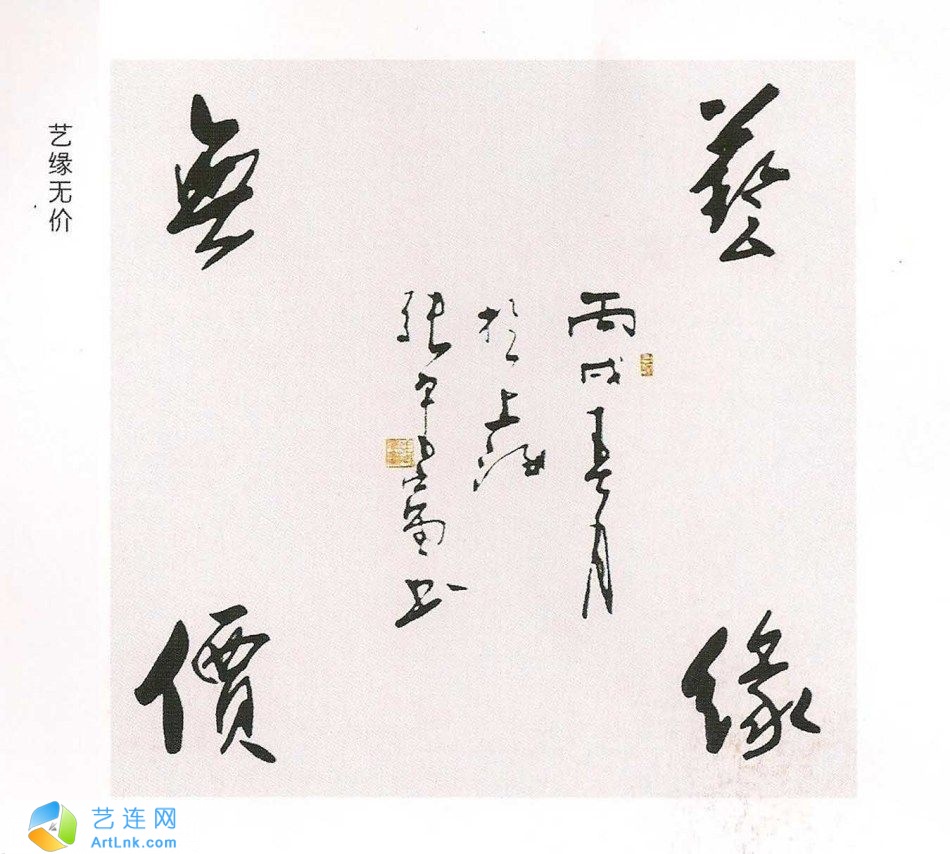 艺缘无价
藝緣
無價
丙戌春月
於上海
张
书
艺连网
ArtLnk.com